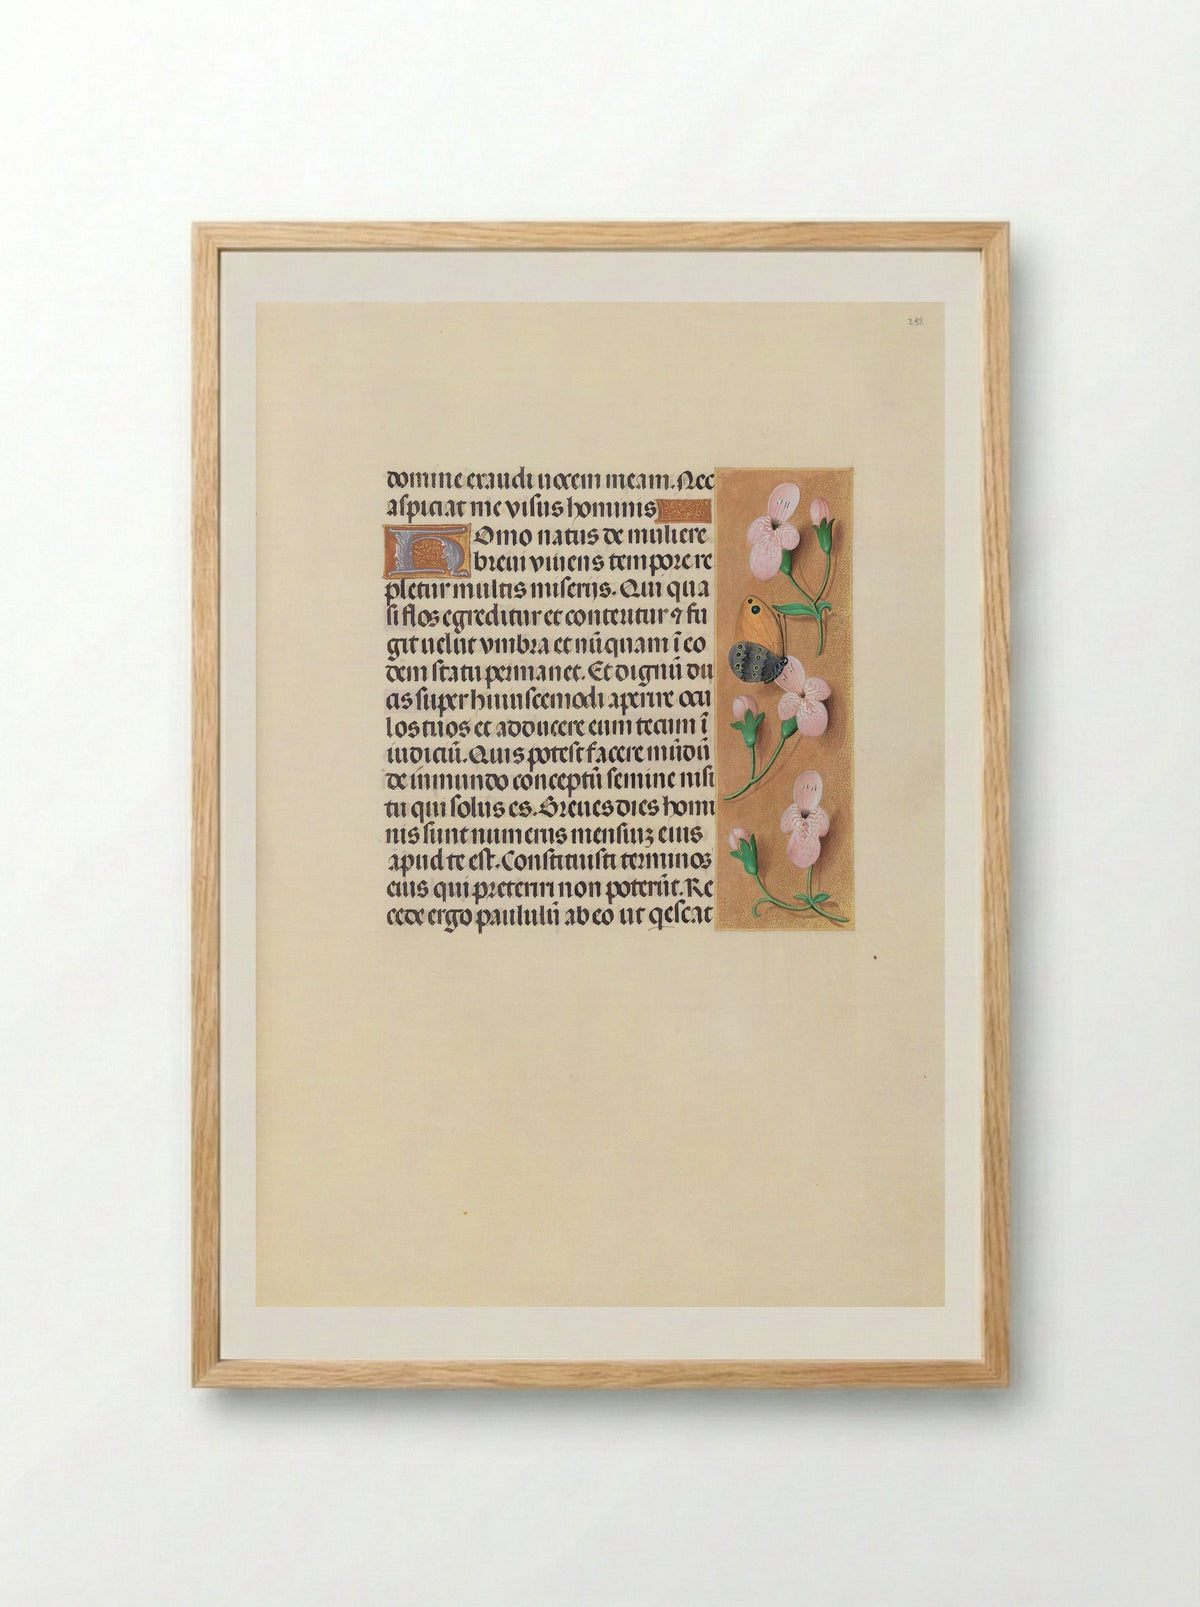 238
domine exaudi uocem meam. Nec
aspiciat me visus hominis
Homo natus de muliere
breui viuens tempore re
pletur multis miserijs. Qui qua
si flos egreditur et conteritur ⁊ fu
git uelut vmbra et nūquam ī eo
dem statu permanet. Et dignū du
cis super huiuscemodi aperire ocu
los tuos et adducere eum tecum ī
iudiciū. Quis potest facere mūdū
de inmundo conceptū semine nisi
tu qui solus es. Breues dies homi
nis sunt numerus mensiuꝫ eius
apud te est. Constituisti terminos
eius qui preteriri non poterūt. Re
cede ergo paululū ab eo ut qescat